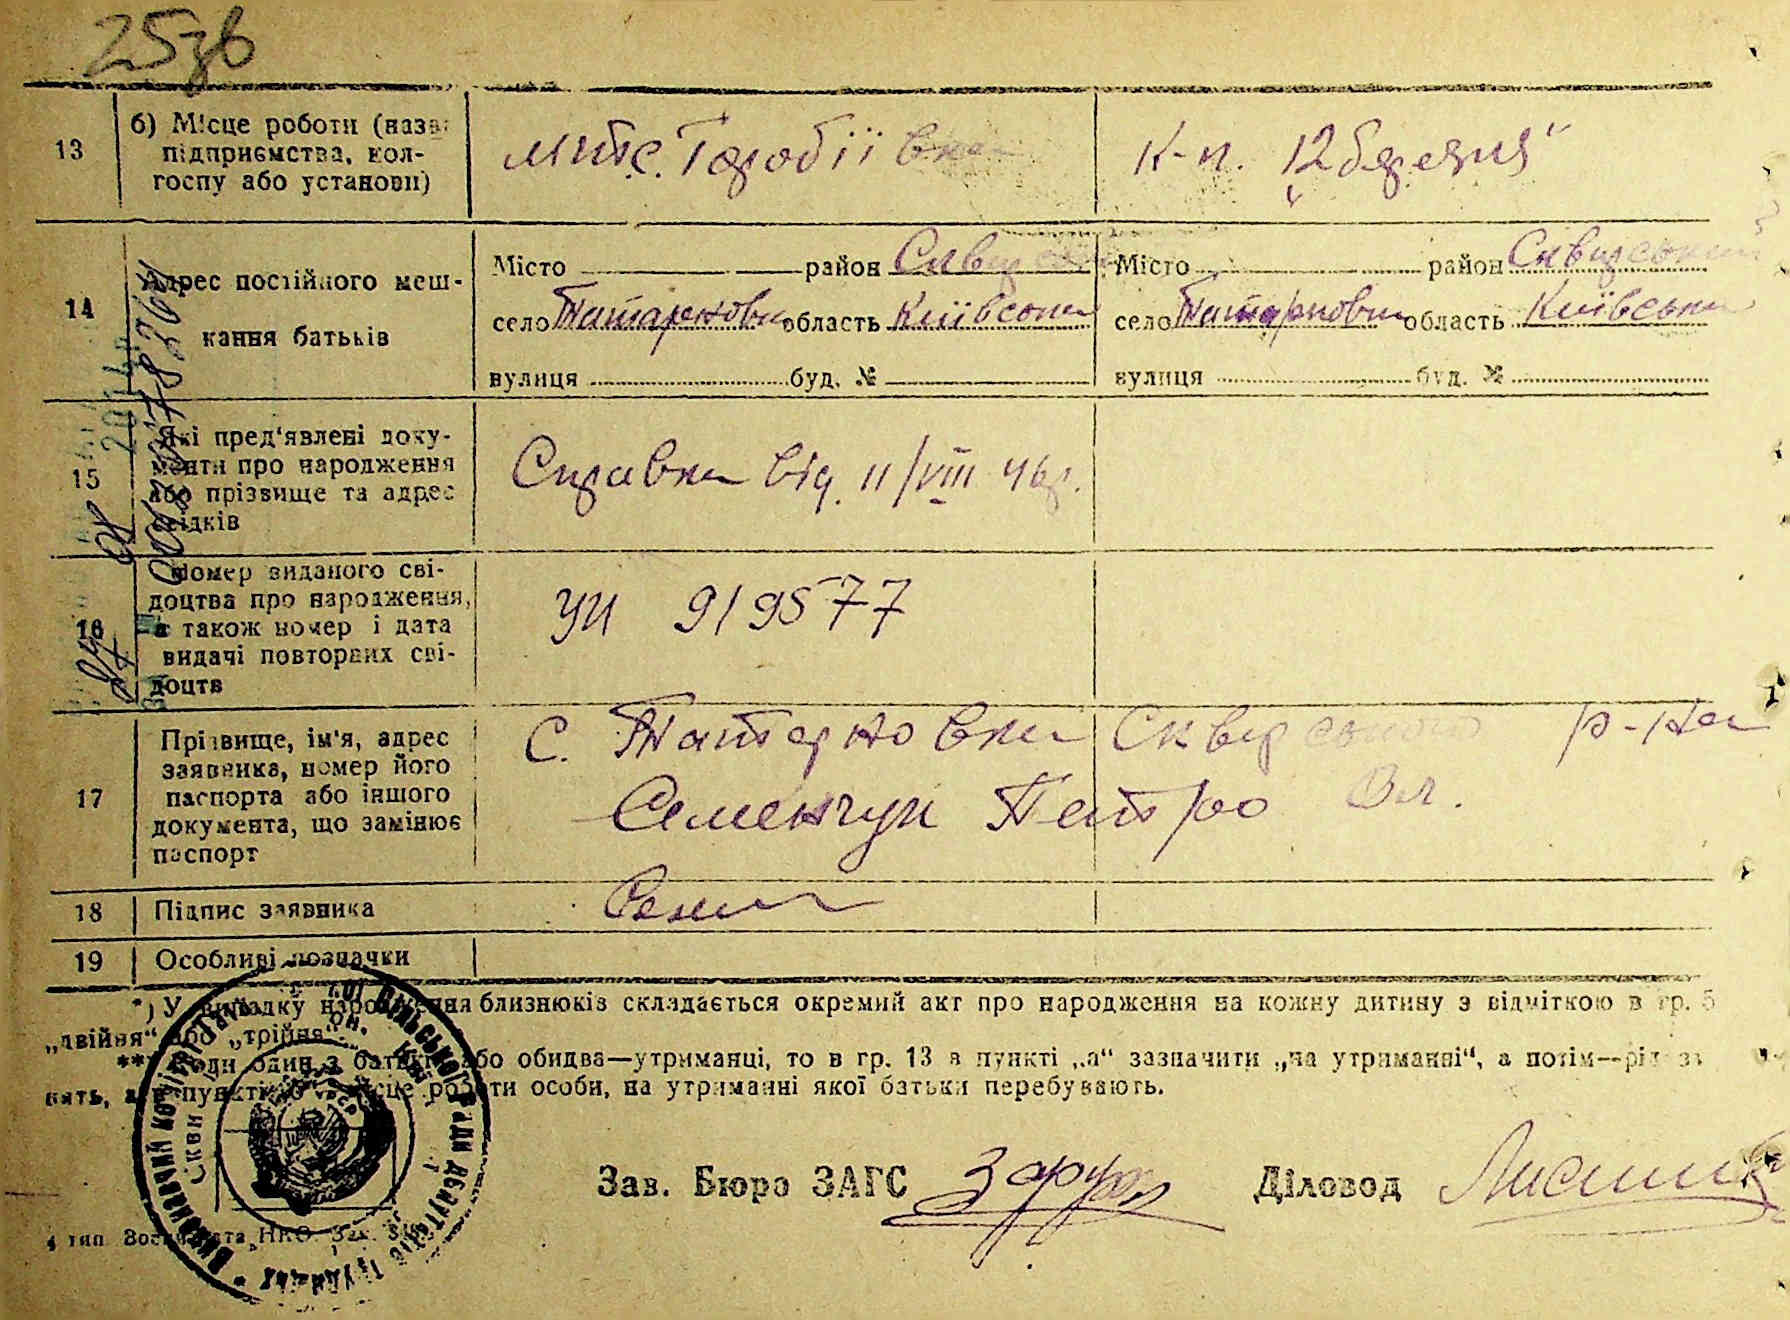 25зв
13 б) Місце роботи (назва
підприємства, кол-
госпу або установи)
мтс. Горобіївка
к-п. "12 березня"
14 Адрес постійного меш-
кання батьків
Місто район Сквирський
село Татарновка область Київська
вулиця буд. №
Місто район Сквирський
село Татарновка область Київська
вулиця буд. №
15 Які пред'явлені доку-
менти про народження
або прізвище та адрес
свідків
Справка від. 11/VIII 46р.
16 Номер виданого сві-
доцтва про народження,
а також номер і дата
видачі повторних сві-
доцтв
УИ 919577
17 Прізвище, ім'я, адрес
заявника, номер його
паспорта або іншого
документа, що замінює
паспорт
с. Татарновка Сквирського р-на
Семенчук Петро Вл.
18 Підпис заявника
19 Особливі позначки
*) У випадку народження близнюків складається окремий акт про народження на кожну дитину з відміткою в гр. 5
„двійня“ або „трійня“.
** Коли один з батьків або обидва—утриманці, то в гр. 13 в пункті „а“ зазначити „на утриманні“, а потім—рід за
нять, а в пункті б місце роботи особи, на утриманні якої батьки перебувають.
Зав. Бюро ЗАГС
Діловод
4 тип Воениздата НКО Зак.